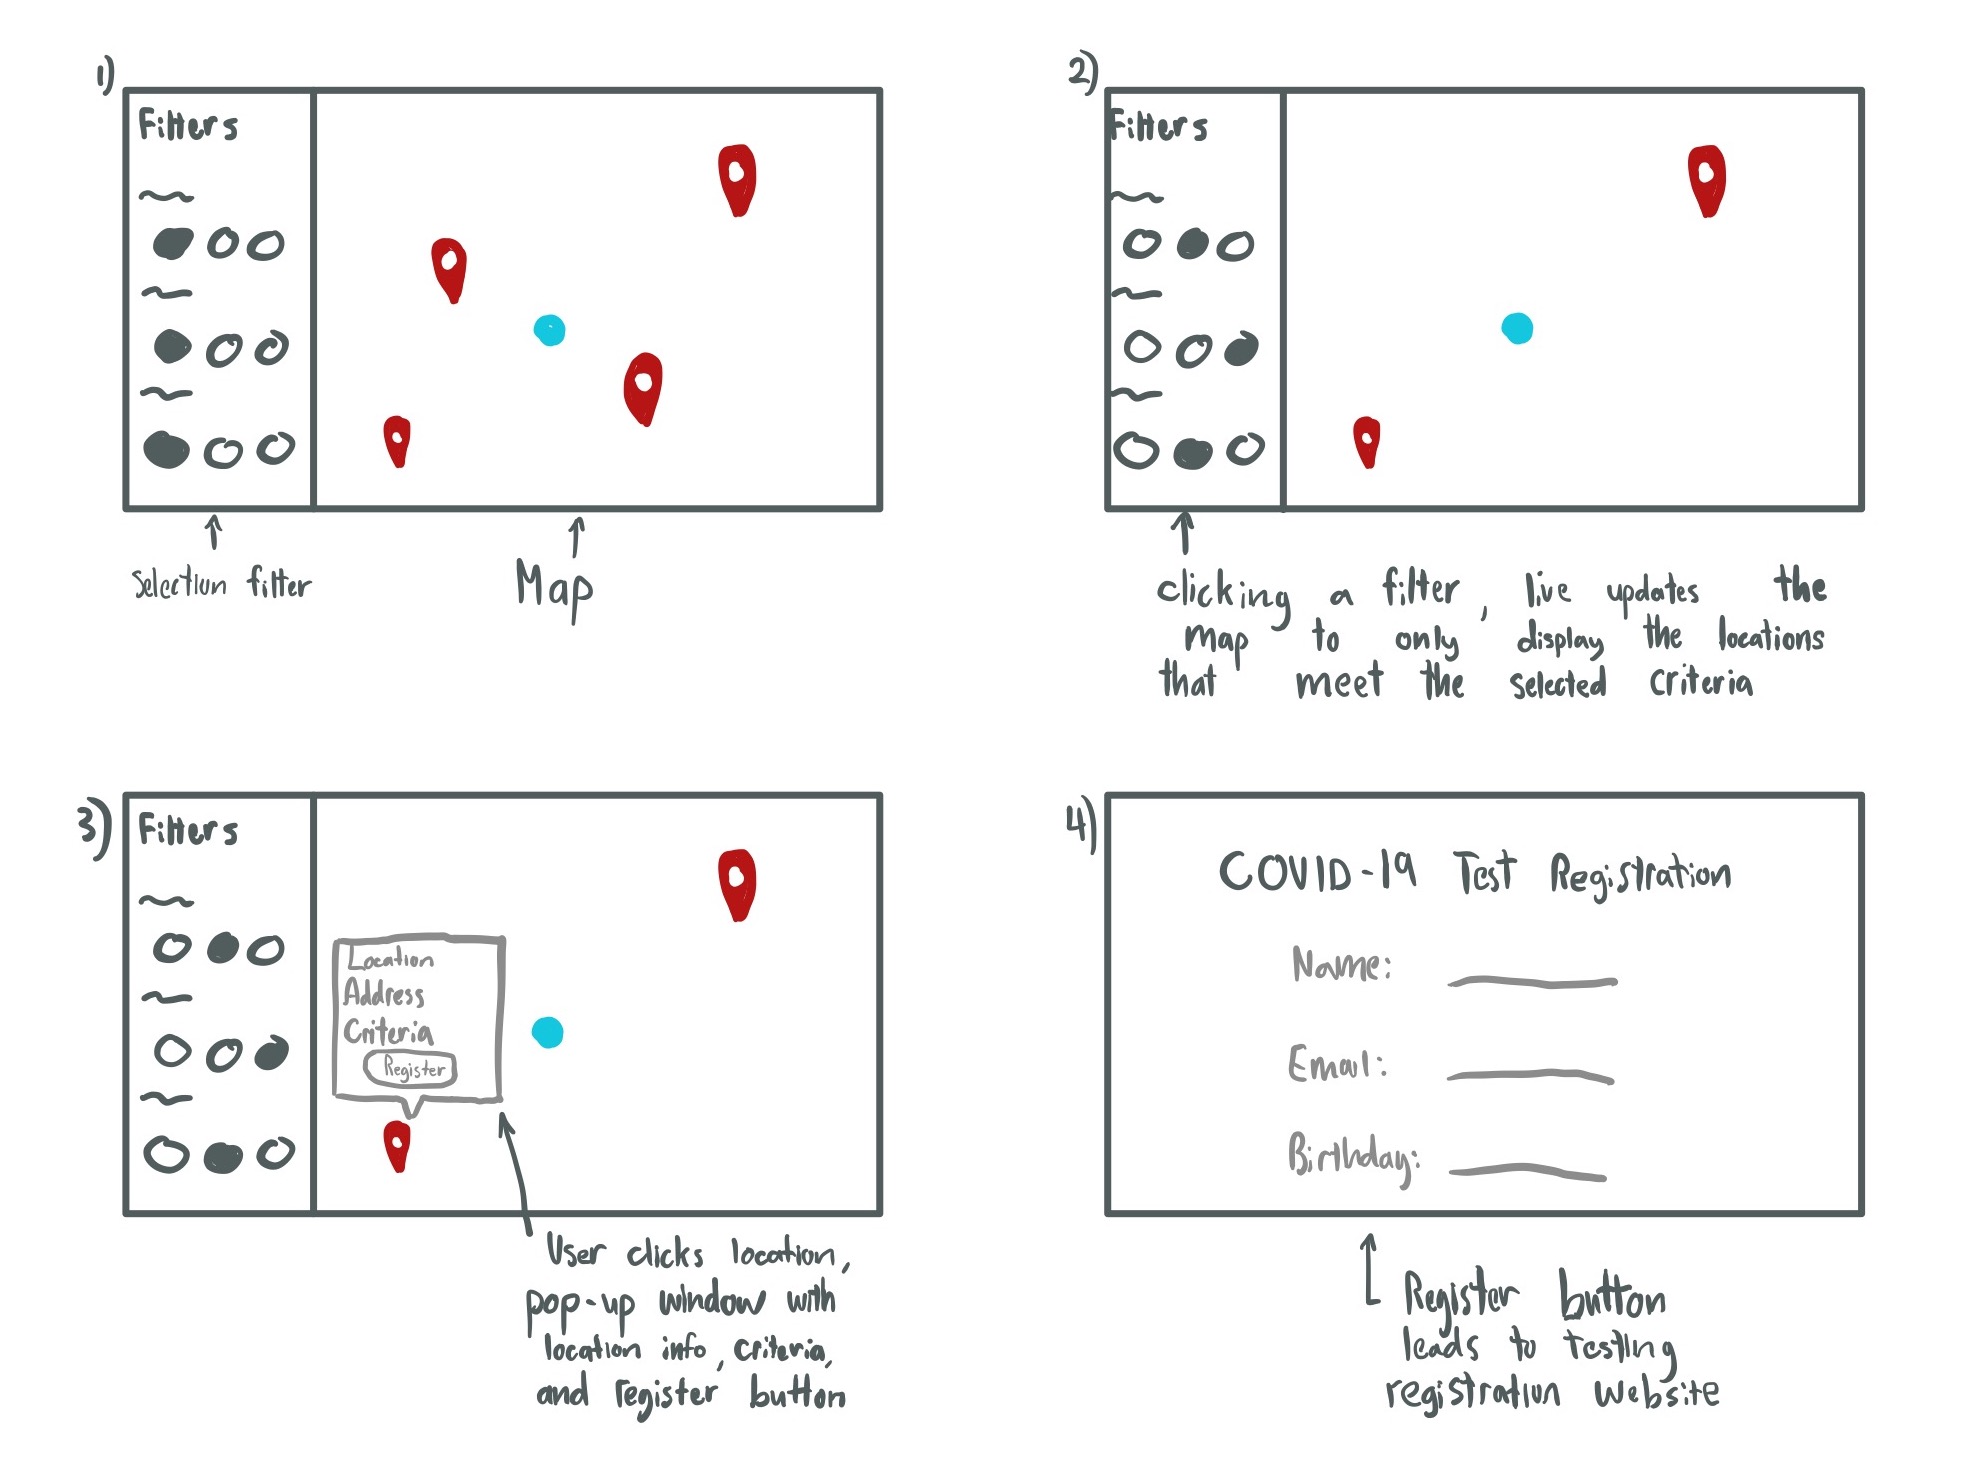 1)
Filters
Selection filter
Map
2)
Filters
clicking a filter, live updates the
map to only display the locations
that meet the selected criteria
3)
Filters
Location
Address
Criteria
Register
User clicks location,
pop-up window with
location info, criteria,
and register button
4)
COVID-19 Test Registration
Name:
Email:
Birthday:
Register button
leads to testing
registration website